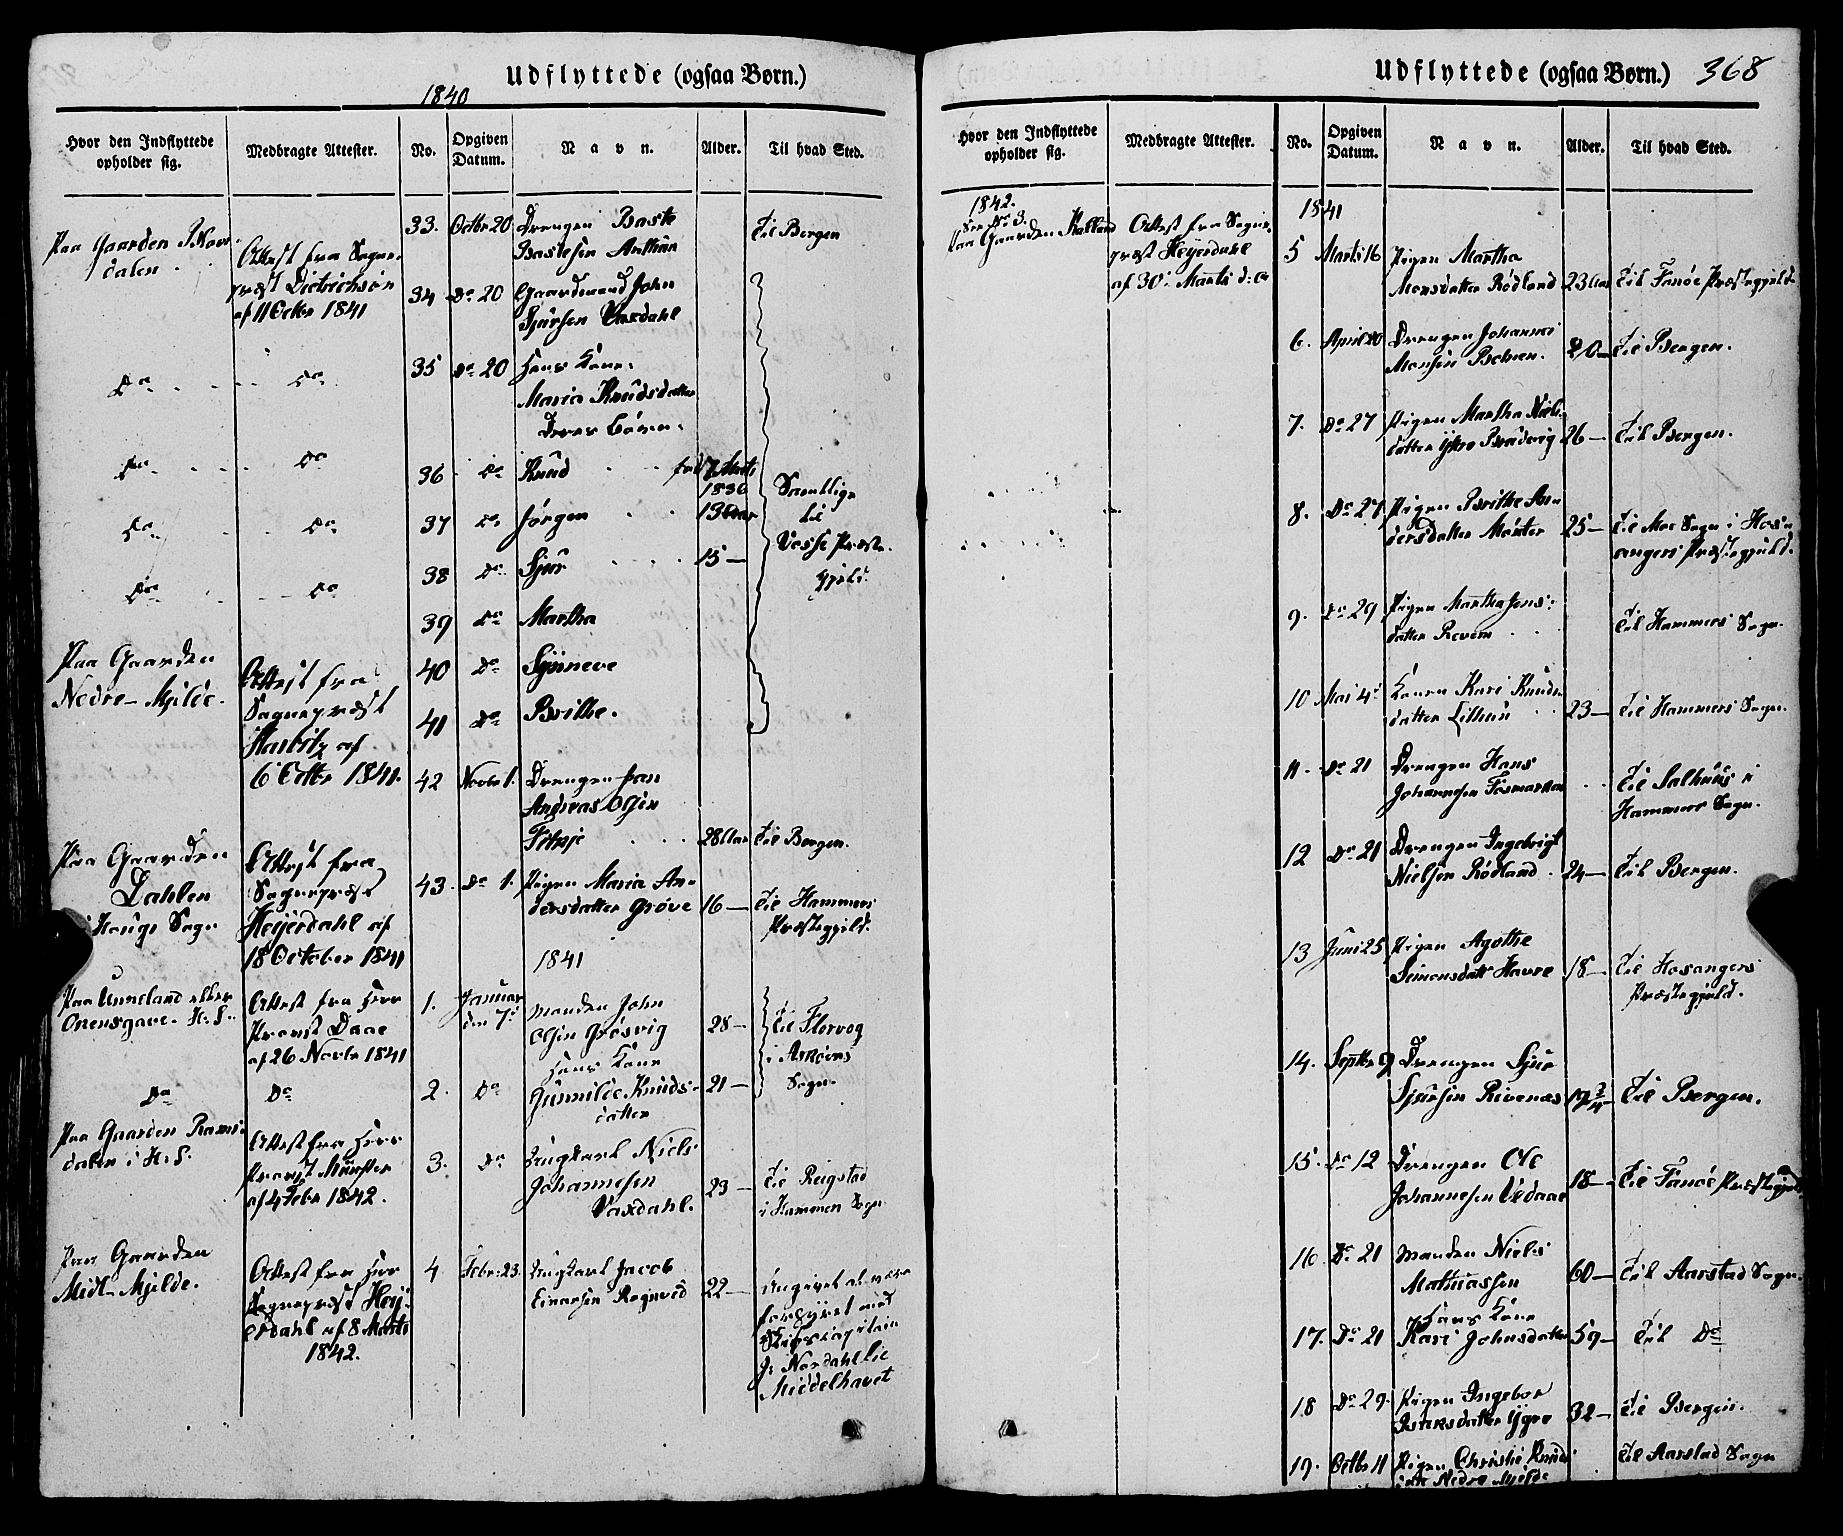 Udflyttede (ogsaa Børn.)
1840
Hvor den Indflyttede opholder sig.
Medbragte Attester.
No.
Opgiven Datum.
Navn.
Alder.
Til hvad Sted.
Paa Gaarden
dalen
Attest fra Sogne-
præst Dietrichson
af 11 Octbr 1841
33. Octbr 20 Drengen Baste
Bastesen
til Bergen
34 Do 20 Gaardmand John
Sjursen Vaxdahl
Do Do
35 Do 20 Hans Kone
Maria Knudsdatter
Deres Børn
Do Do
36 Do Knud
1836
Samtlige
til
Præste-
gjeld.
Do Do
37 Do Jørgen 13 Aar
38 Do Sjur 15 —
Do Do
39 Do Martha
Paa Gaarden
Nedre-Mjelde.
Attest fra
Sognepræst
af
6 Octbr 1841.
40 Do Synneve
41 Do Brithe.
42 Novbr 1. Drengen Jan
Andreas Olsen
28 Aar til Bergen.
Paa Gaarden
Dahlen
i Hougs Sogn
Attest fra
Sognepræst
Heyerdahl af
18 October 1841
43. Do 1. Pigen Maria An-
dersdatter Grøve 16 — til Hammers
Præstegjeld.
1841
Paa Unneland eller
H. S.
Attest fra Herr
Provst Daae
af 26 Novbr 1841
1. Januar
den 7d
Manden John
Olsen Grøsvig 28 —
til Florvog
i Askøens
Sogn.
Hans Kone
Do Do
2. Do Gunnilde Knuds-
datter 21 —
Paa Gaarden
dalen i H. S.
Attest fra Herr
Provst Münster
af 4 Febr 1842.
3. Do Ungkarl Niels
Johannesen
Vaxdahl. 23 —
til Reigstad
i Hammer Sogn
Paa Gaarden
Midt-Mjelde.
Attest fra Herr
Sognepræst Hey-
erdahl af 8 Marts
1842.
4 Febr: 23. Ungkarl Jacob
Einarsen 22 —
Angivet at være
forhyret med
Skibscapitain
J. Nordahl til
Middelhavet
Udflyttede (ogsaa Børn.) 368
Hvor den Indflyttede opholder sig.
Medbragte Attester.
No.
Opgiven Datum.
Navn.
Alder.
Til hvad Sted.
1842.
See No 3.
Paa Gaarden Kalland
Attest fra Sogne-
præst Heyerdahl
af 30 Marts d: A
1841
5 Marts 16 Pigen Martha
Monsdatter Rødland 23 Aar til Fanøe Præstegjeld
6. April 20 Drengen Johannes
Monsen 20 — til Bergen.
7. Do 27 Pigen Martha Niels-
datter 26 — til Bergen.
8. Do 27 Pigen Brithe An-
dersdatter 25 — til Moe Sogn i Hos-
angers Præstegjeld.
9. Do 29 Pigen Martha Jens-
datter til Hammers Sogn.
10 Mai 4d Konen Kari Knuds-
datter 23 — til Hammers Sogn.
11. Do 21 Drengen Hans
Johannesen til Salhuus i
Hammers Sogn.
12 Do 21 Drengen Ingebrigt
Nielsen Rødland. 24 — til Bergen.
13 Juni 25 Pigen Agothe
Simonsdatt Havre 18 — til Hosangers
Præstegjeld.
14. Septbr 9 Drengen Sjur
Sjursen Rivenæs 19 3/4 — til Bergen.
15. Do 12 Drengen Ole
Johannesen Vedaae 18 — til Fanøe Præstegjeld
16 Do 21 Manden Niels
Mathiassen 60 — til Aarstad Sogn.
Hans Kone
17. Do 21 Kari Johnsdatter 59 — til Do
18 Do 29. Pigen Ingebor
Isaksdatter 32 — til Bergen.
19. Octbr 11 Pigen Christi Knuds-
datter Nedre Mjelde til Aarstad Sogn